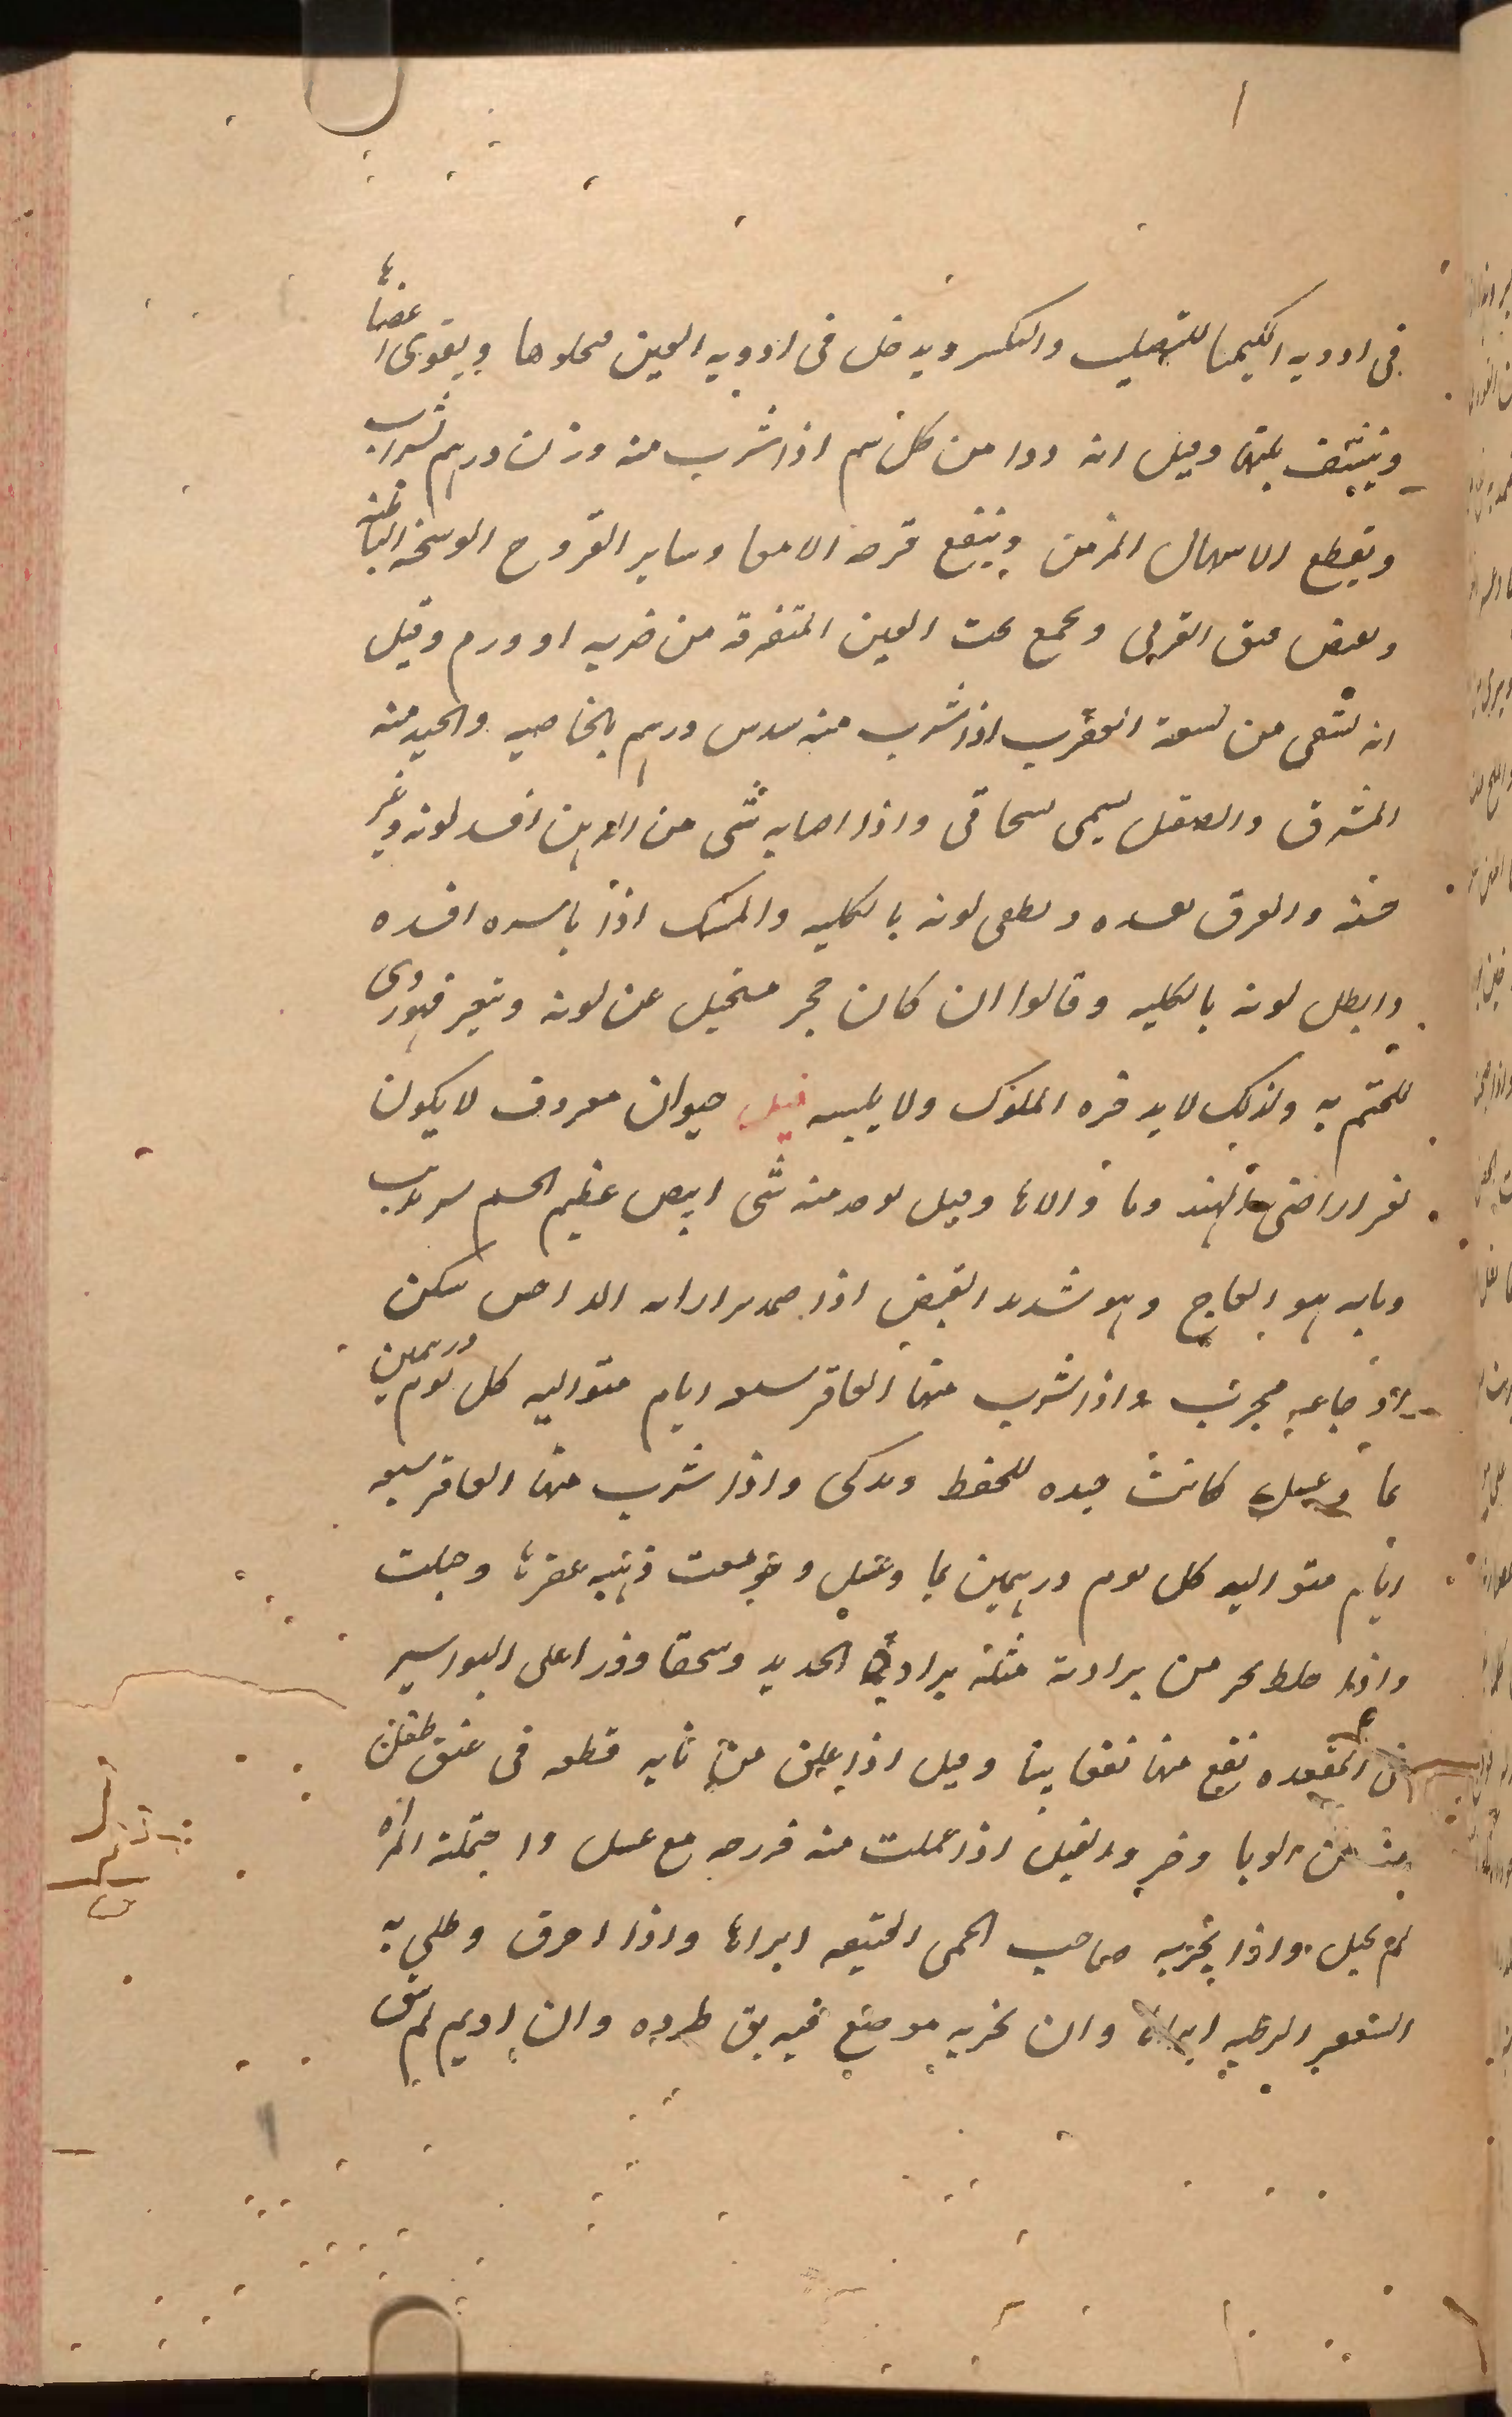 ١
فى ادويه الكيميا للتصليب والتكسر ويدخل فى ادويه العين فيجلوها ويقوى اعضاءها
وينشف بلتها وقيل انه دوا من كل سم اذا شرب منه وزن درهم بشراب
ويقطع الاسهال المزمن وينفع قرحه الامعا وساير القروح الوسخه الباطنه
ويقبض القرنى ويجمع تحت العين المتفرقه من ضربه او ورم وقيل
انه يشفى من لسعة العقرب اذا شرب منه سدس درهم بالخاصيه والجيد منه
المشرق والصقل يسمى سحاقى واذا اصابه شى من الدهن افسد لونه وغير
حسنه والعرق يفسده ويطفى لونه بالكليه والمسك اذا باشره افسده
وابطل لونه بالكليه وقالوا ان كان حجر مستحيل عن لونه ويتغير فهو ردى
للتختم به ولذلك لا يدخره الملوك ولا يلبسه فيل حيوان معروف لا يكون
بغر اراضى الهند وما والاها وقيل يوجد منه شى ابيض عظيم الجسم
ونابه هو العاج وهو شديد القبض اذا ضمد الداحس سكن
مجرب واذا شرب منها العاقر سبعه ايام متواليه كل يوم درهمين
بما وعسل كانت جيده للحفظ ويذكى واذا شرب منها العاقر سبعه
ايام متواليه كل يوم درهمين بما وعسل وجومعت وحبلت
واذا خلط جز من برادته مثله برادة الحديد وسحقا وذرا على البواسير
فى المقعده نفع منها نفعا بينا وقيل اذا علق من نابه قطعه فى عنق طفل
من الوبا وخر والفيل اذا عملت منه فرزجه مع عسل واحتملته المراه
لم تحبل واذا بخر به صاحب الحمى العتيقه ابراها واذا احرق وطلى به
السعفه الرطبه ابراها وان بخر به موضع فيه بق طرده وان اديم لم يبق